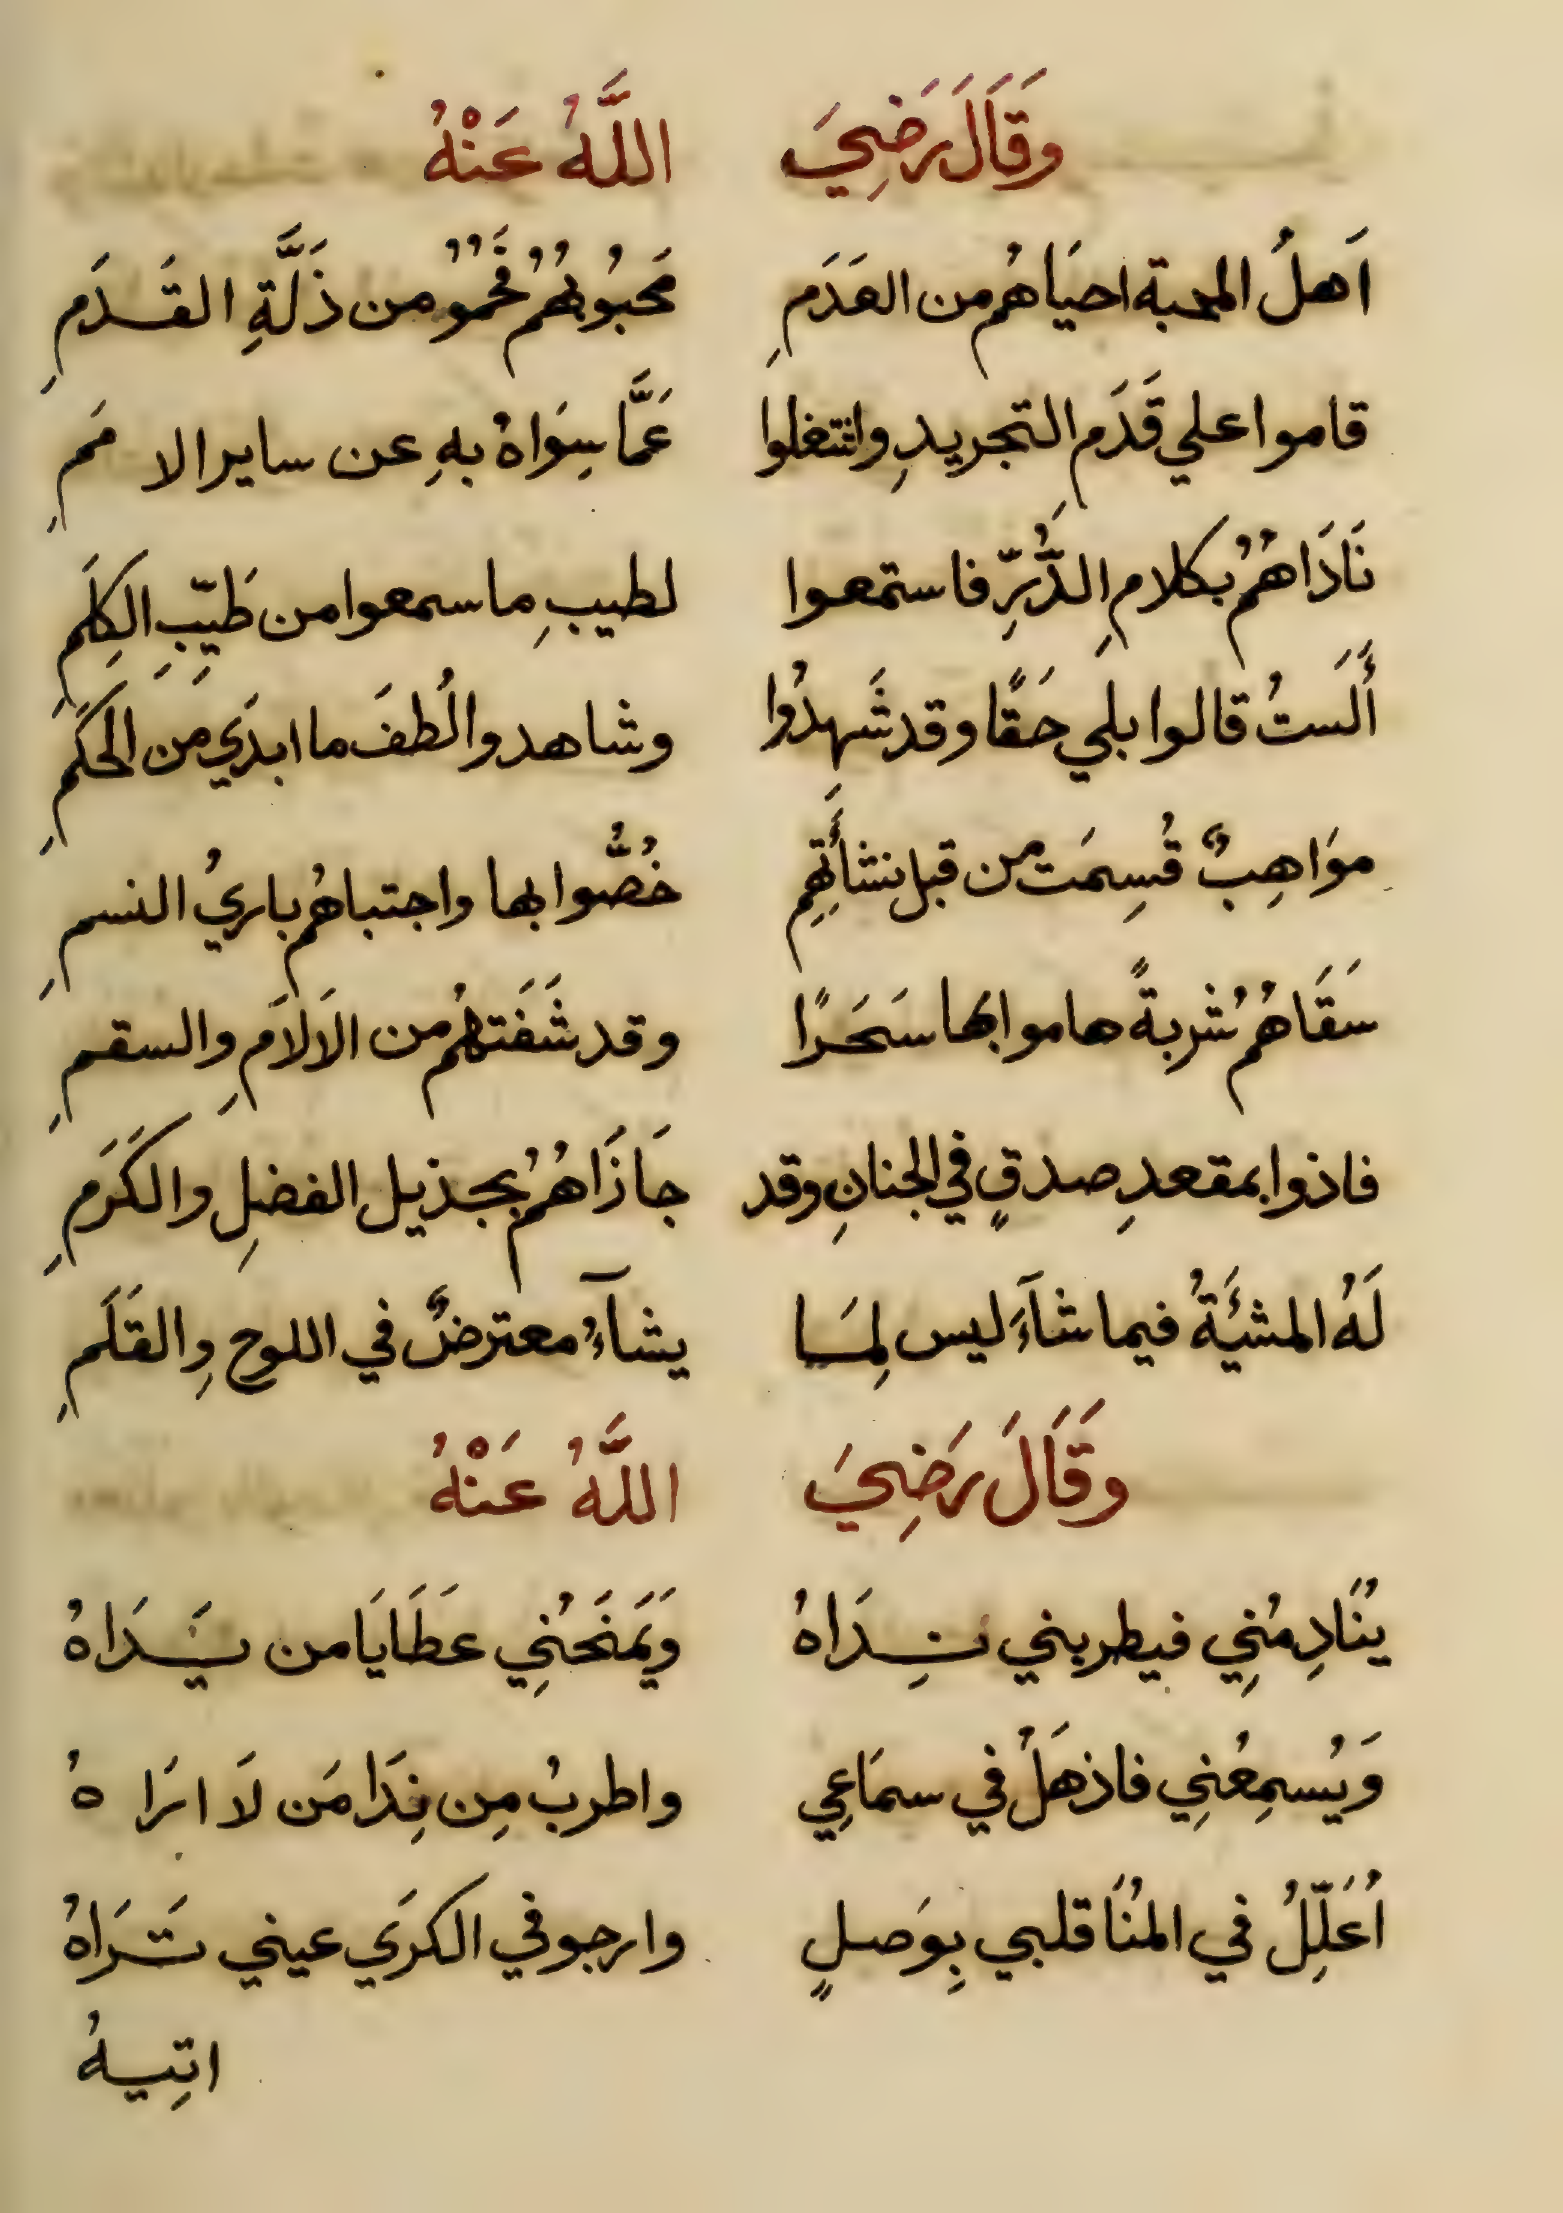 وَقَالَ رَضِيَ اللَّهُ عَنْهُ
اَهلُ المحبة احيَاهُم من العَدَمِ مَحبُوبُهُمْ فَحُمُو من ذَلَّةِ القَدَمِ
قاموا علي قَدَمِ التجريدِ واشتغلوا عَمَّا سِوَاهُ بهِ عن ساير الامَمِ
نَادَاهُمُ بكلامِ الدُّرِّ فاستمعوا لطيبِ ما سمعوا من طَيِّبِ الكِلَمِ
أَلَستُ قالوا بلي حَقًا وقد شَهِدُوا وشاهدوا لُطفَ ما ابدَي مَن الحِكَمِ
موَاهِبٌ قُسِمَت من قبل نشأَتِهِم خُصُّوا بها واجتباهُم باريُ النسمِ
سَقَاهُم شُربةً هاموا بها سَحَرًا وقد شَفَتهُم من الاَلاَمِ والسقمِ
فاذوا بمقعدِ صدقٍ في الجنانِ وقد جَازَاهُمُ بجذيل الفضلِ والكَرَمِ
لَهُ المشيَّةُ فيما شآءَ ليس لِمَا يشآءُ معترضٌ في اللوح وِالقَلَمِ
وَقَالَ رَضِيَ اللَّهُ عَنْهُ
يُنَادِمُنِي فيطربني نِدَاهُ وَيَمنَحُنِي عَطَايَا من يَدَاهُ
وَيُسمِعُنِي فاذهَلُ في سمَاعِي واطربُ مِن نِدَا مَن لاَ ارَاهُ
اُعَلِّلُ في المُنَا قلبي بِوَصلٍ وارجو في الكرَي عيني تَرَاهُ
اتِيهُ